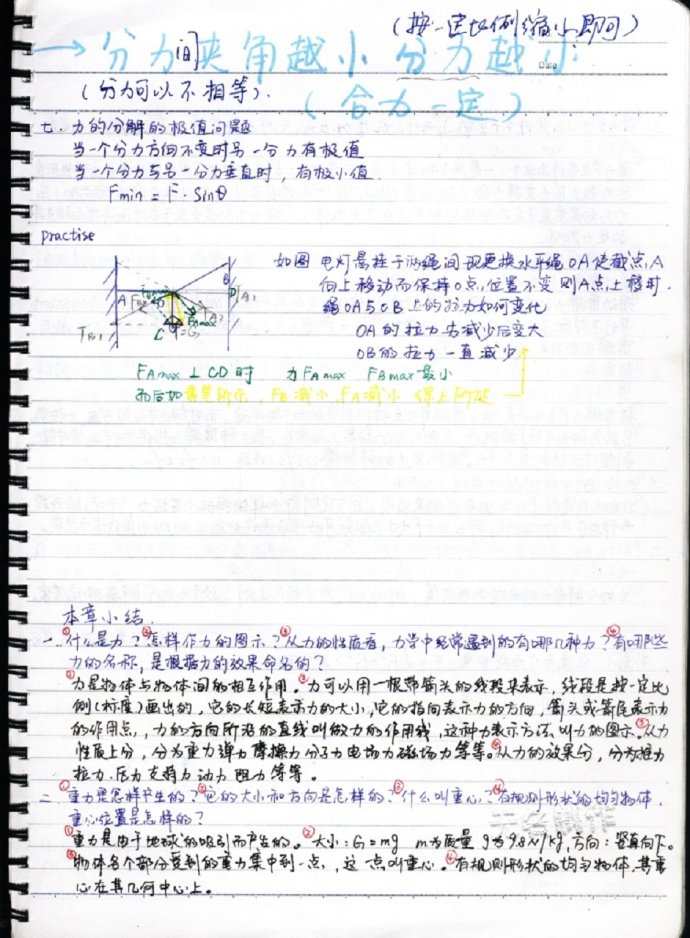 (按一定比例缩小即可)
→分力间夹角越小 分力越小
Date
(分力可以不相等).
(合力一定)
七. 力的分解的极值问题
当一个分力方向不变时另一分力有极值
当一个分力与另一分力垂直时,有极小值.
Fmin = F · Sinθ
practise
如图 电灯悬挂于两绳间 现更换水平绳OA使截点,A
向上移动而保持O点,位置不变 则A点上移时.
绳OA与OB上的拉力如何变化
OA的拉力先减少后变大
OB的拉力一直减少
A
B
D
TA1
TA2
FAmax
TB1
C
FAmax ⊥ CD时 力FAmax FBmax最小
而后如黄笔所示,FB减小,FA减小 综上所述
本章小结.
一.①什么是力?②怎样作力的图示?③从力的性质看,力学中经常遇到的有哪几种力?④有哪些
力的名称,是根据力的效果命名的?
①力是物体与物体间的相互作用。②力可以用一根带箭头的线段来表示,线段是按一定比
例(标度)画出的,它的长短表示力的大小,它的指向表示力的方向,箭头或箭尾表示力
的作用点,,力的方向所沿的直线叫做力的作用线,这种力表示方法叫力的图示。③从力
性质上分,分为重力弹力摩擦力分子力电场力磁场力等等。④从力的效果分,分为拉力
拉力.压力支持力动力阻力等等。
二.①重力是怎样产生的?②它的大小和方向是怎样的?③什么叫重心?④有规则形状的均匀物体,
重心位置是怎样的?
①重力是由于地球的吸引而产生的。②大小:G=mg m为质量 g为9.8N/kg,方向:竖直向下。
③物体各个部分受到的重力集中到一点,这一点叫重心。④有规则形状的均匀物体,其重
心在其几何中心上。